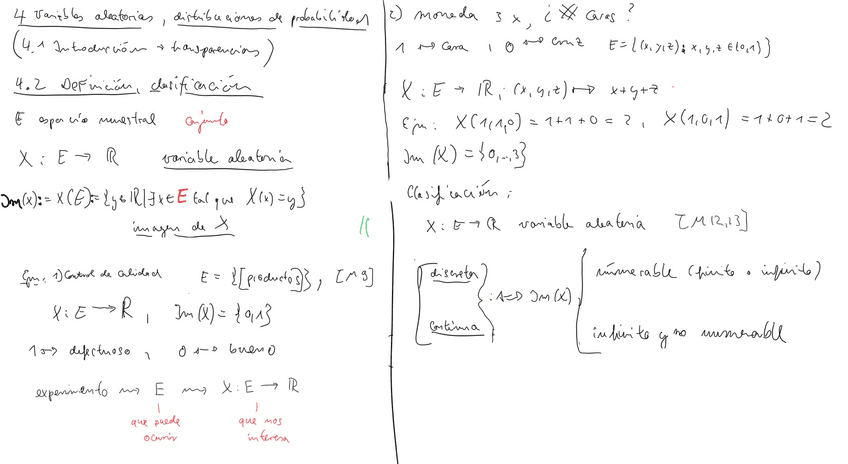 4 Variables aleatorias, distribuciones de probabilidad
(4.1 Introducción → transparencias)
4.2 Definición, clasificación
E espacio muestral conjunto
X : E → ℝ variable aleatoria
Im(X) := X(E) := {y ∈ ℝ | ∃ x ∈ E tal que X(x) = y}
imagen de X
Ejm: 1) Control de calidad E = {[productos]}, [M 9]
X : E → ℝ, Im(X) = {0,1}
1 ↦ defectuoso, 0 ↦ bueno
experimento ⇝ E ⇝ X : E → ℝ
que puede ocurrir
que nos interesa
2) moneda 3 x, ¿ # caras?
1 ↔ cara, 0 ↔ cruz E = {(x,y,z) : x,y,z ∈ {0,1}}
X : E → ℝ, (x,y,z) ↦ x+y+z
Ejm: X(1,1,0) = 1+1+0 = 2, X(1,0,1) = 1+0+1 = 2
Im(X) = {0,..,3}
Clasificación:
X : E → ℝ variable aleatoria [M 12,13]
discreta
:⟺ Im(X)
numerable (finito o infinito)
continua
infinito y no numerable